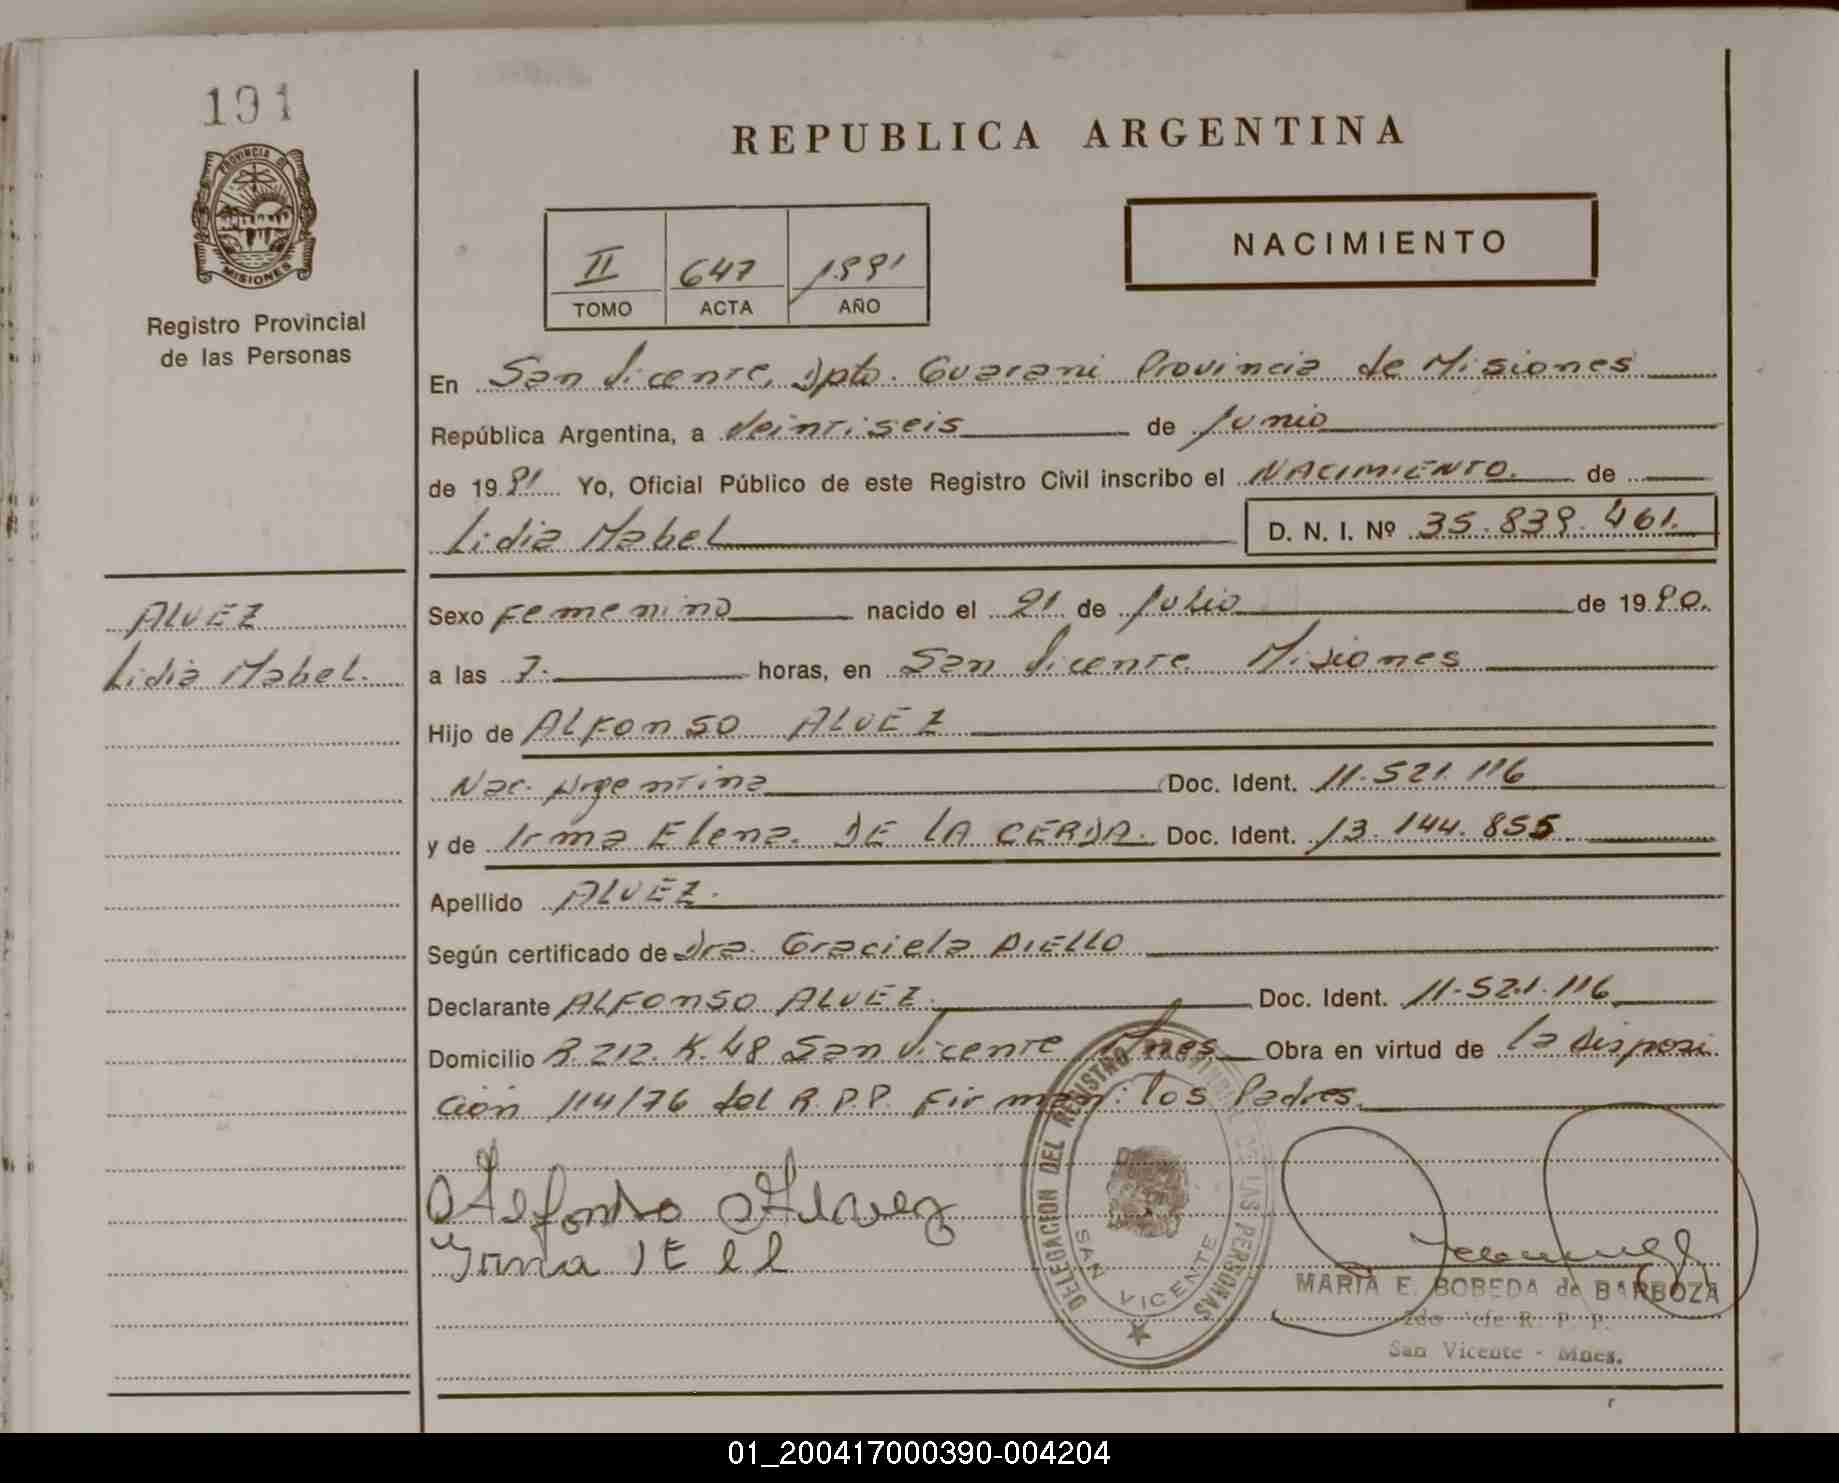 191
PROVINCIA DE
MISIONES
Registro Provincial
de las Personas
REPUBLICA ARGENTINA
II 647 1991
TOMO ACTA AÑO
NACIMIENTO
En San Vicente, Dpto. Guarani Provincia de Misiones
República Argentina, a Veintiseis de Junio
de 1991 Yo, Oficial Público de este Registro Civil inscribo el NACIMIENTO. de
Lidia Mabel D. N. I. Nº 35.839.461.
ALVEZ
Lidia Mabel.
Sexo Femenino nacido el 21 de Julio de 1990.
a las 7. horas, en San Vicente Misiones
Hijo de ALFONSO ALVEZ
Nac. Argentina Doc. Ident. 11.521.116
y de Irma Elena. DE LA CERDA. Doc. Ident. 13.144.855
Apellido ALVEZ.
Según certificado de Dra. Graciela AIELLO
Declarante ALFONSO ALVEZ. Doc. Ident. 11.521.116
Domicilio R. 212. K. 48 San Vicente Mnes Obra en virtud de la disposi
ción 114/76 del R.P.P. Firman: los Padres.
Alfonso Alvez
Irma
DELEGACION DEL REGISTRO DE LAS PERSONAS
SAN VICENTE
MARIA E. BOBEDA de BARBOZA
2do Jefe R. P. P.
San Vicente - Mnes.
01_200417000390-004204